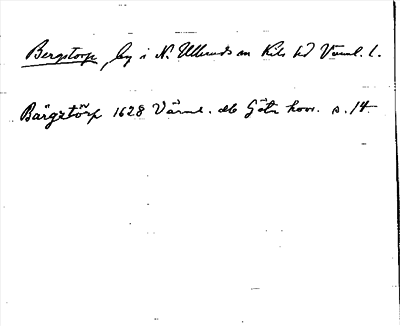 Bergstorp, by i N. Ulleruds sn Kils hd Värml. l.
Bärgztörp 1628 Värml. db Göta hovr. s. 14.